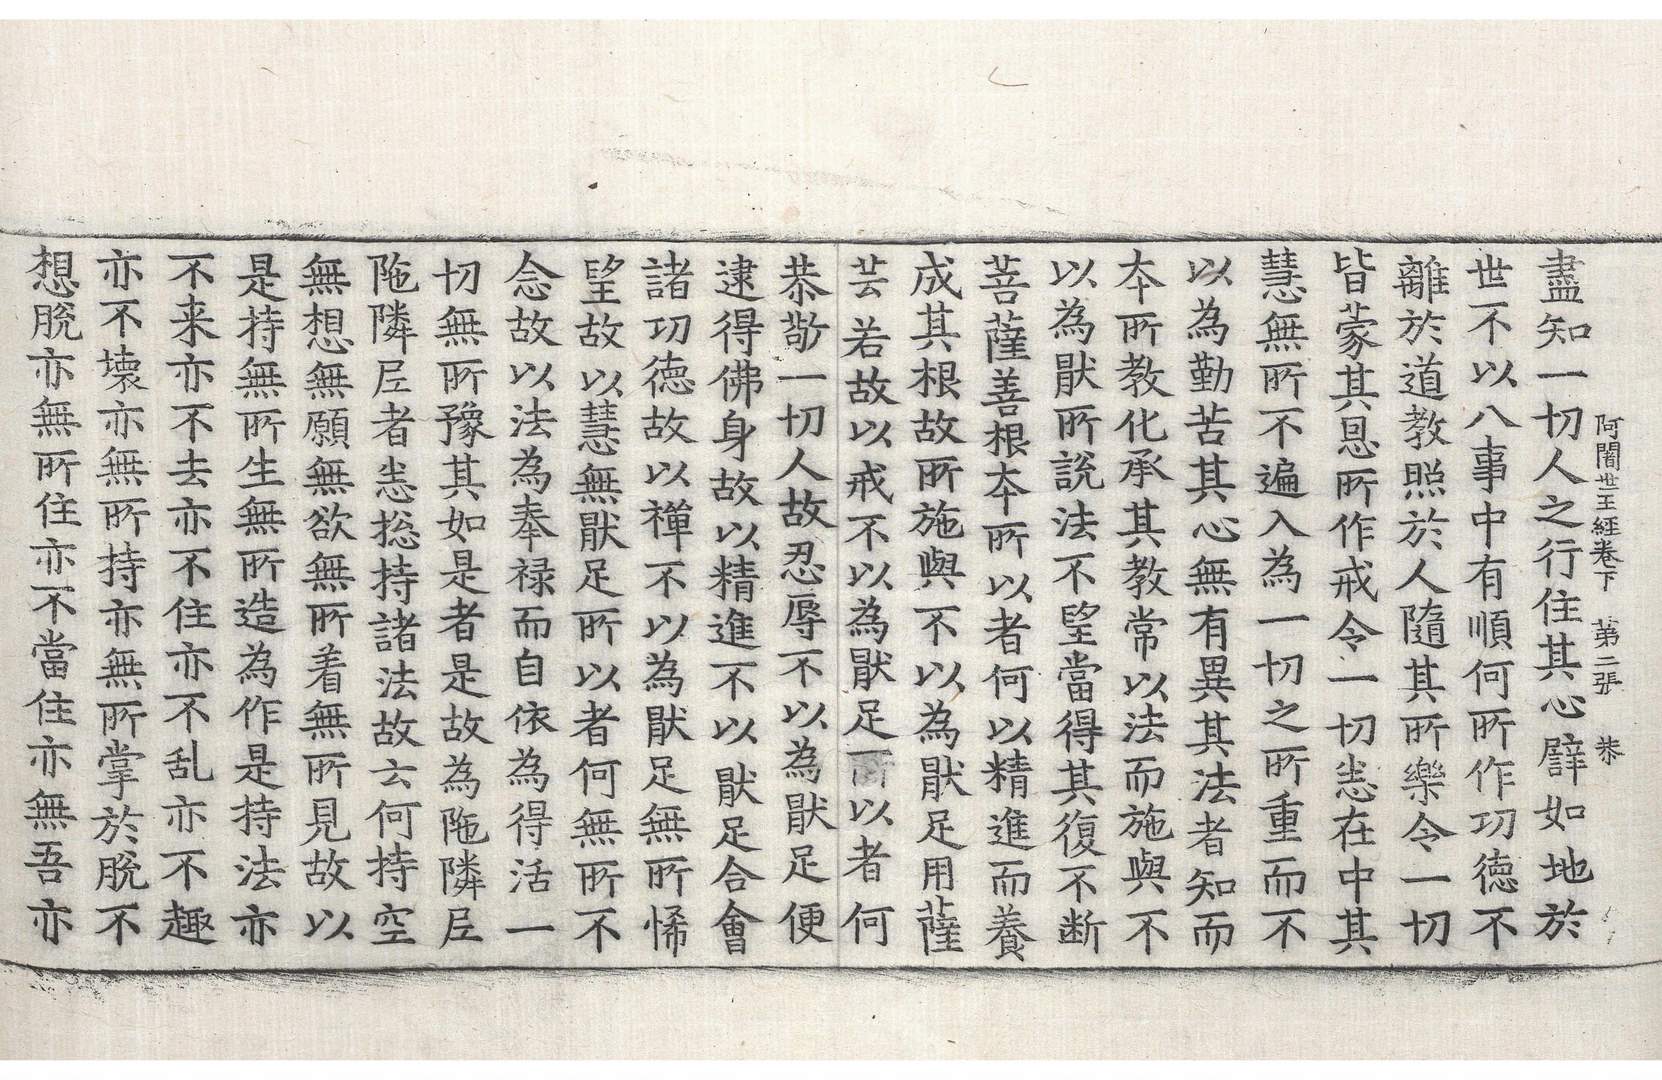 阿闍世王經卷下　第二張　㳟
盡知一切人之行住其心譬如地於
世不以八事中有順何所作功德不
離於道教照於人隨其所樂令一切
皆蒙其恩所作戒令一切悉在中其
慧無所不遍入為一切之所重而不
以為勤苦其心無有異其法者知而
本所教化承其教常以法而施與不
以為猒所說法不望當得其復不断
菩薩善根本所以者何以精進而養
成其根故所施與不以為猒足用薩
芸若故以戒不以為猒足所以者何
恭敬一切人故忍辱不以為猒足便
逮得佛身故以精進不以猒足合會
諸功德故以禪不以為猒足無所悕
望故以慧無猒足所以者何無所不
念故以法為奉禄而自依為得活一
切無所豫其如是者是故為陁隣尼
陁隣尼者悉捴持諸法故云何持空
無想無願無欲無所着無所見故以
是持無所生無所造為作是持法亦
不来亦不去亦不住亦不乱亦不趣
亦不壞亦無所持亦無所掌於脫不
想脫亦無所住亦不當住亦無吾亦